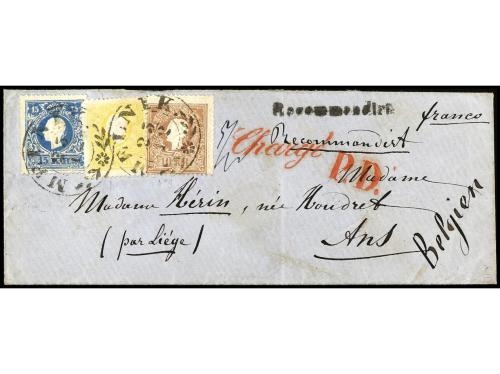 15 15
Recommandirt
franco
Recommandirt
Chargé
P.D.
Madame
Madame Hérin, née Houdret
(par Liége)
Ans
Belgien